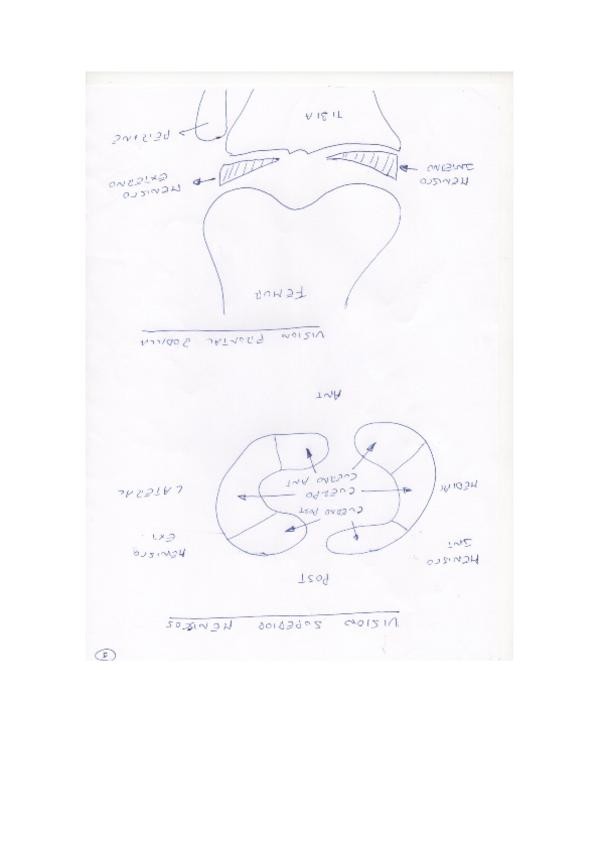 VISION SUPERIOR MENISCOS
POST
MENISCO
INT
MENISCO
EXT.
CUERNO POST
CUERPO
CUERNO ANT
MEDIAL
LATERAL
ANT
VISION FRONTAL RODILLA
FEMUR
MENISCO
INTERNO
MENISCO
EXTERNO
PERONE
TIBIA